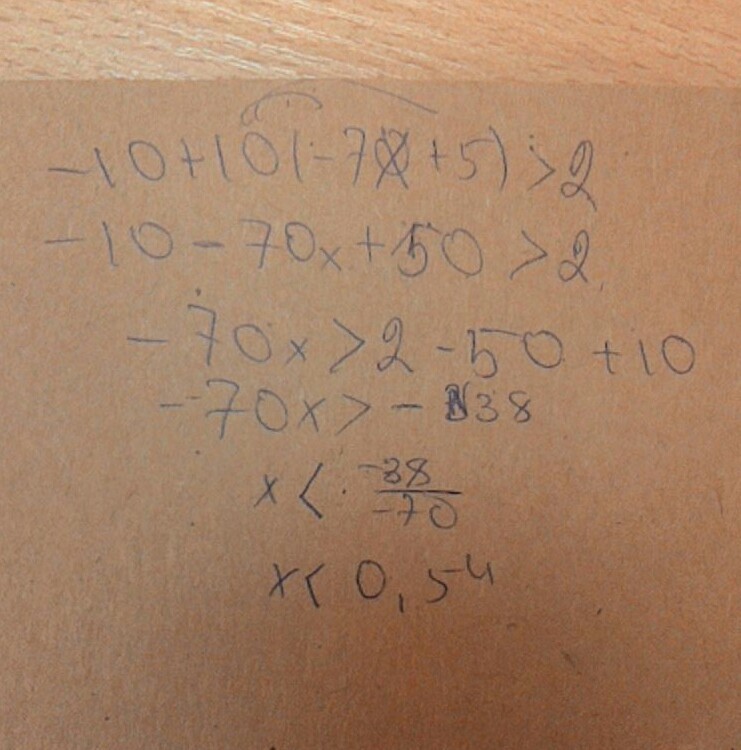 -10+10(-7x+5)>2
-10-70x+50>2
-70x>2-50+10
-70x>-38
x<-38/-70
x<0,54